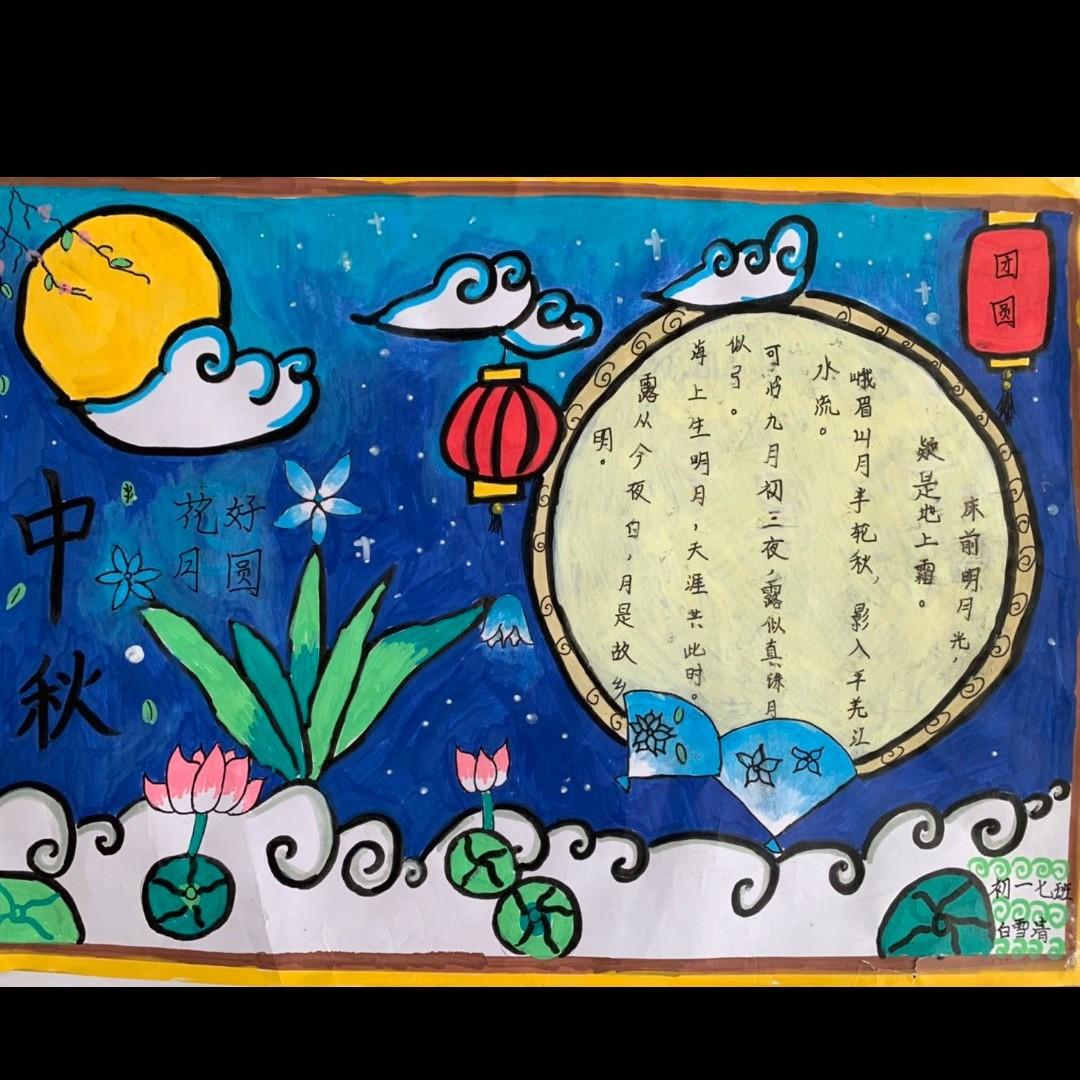 中秋
花好
月圆
团圆
床前明月光，
疑是地上霜。
峨眉山月半轮秋，影入平羌江
水流。
可怜九月初三夜，露似真珠月
似弓。
海上生明月，天涯共此时。
露从今夜白，月是故乡
明。
初一七班
白雪清